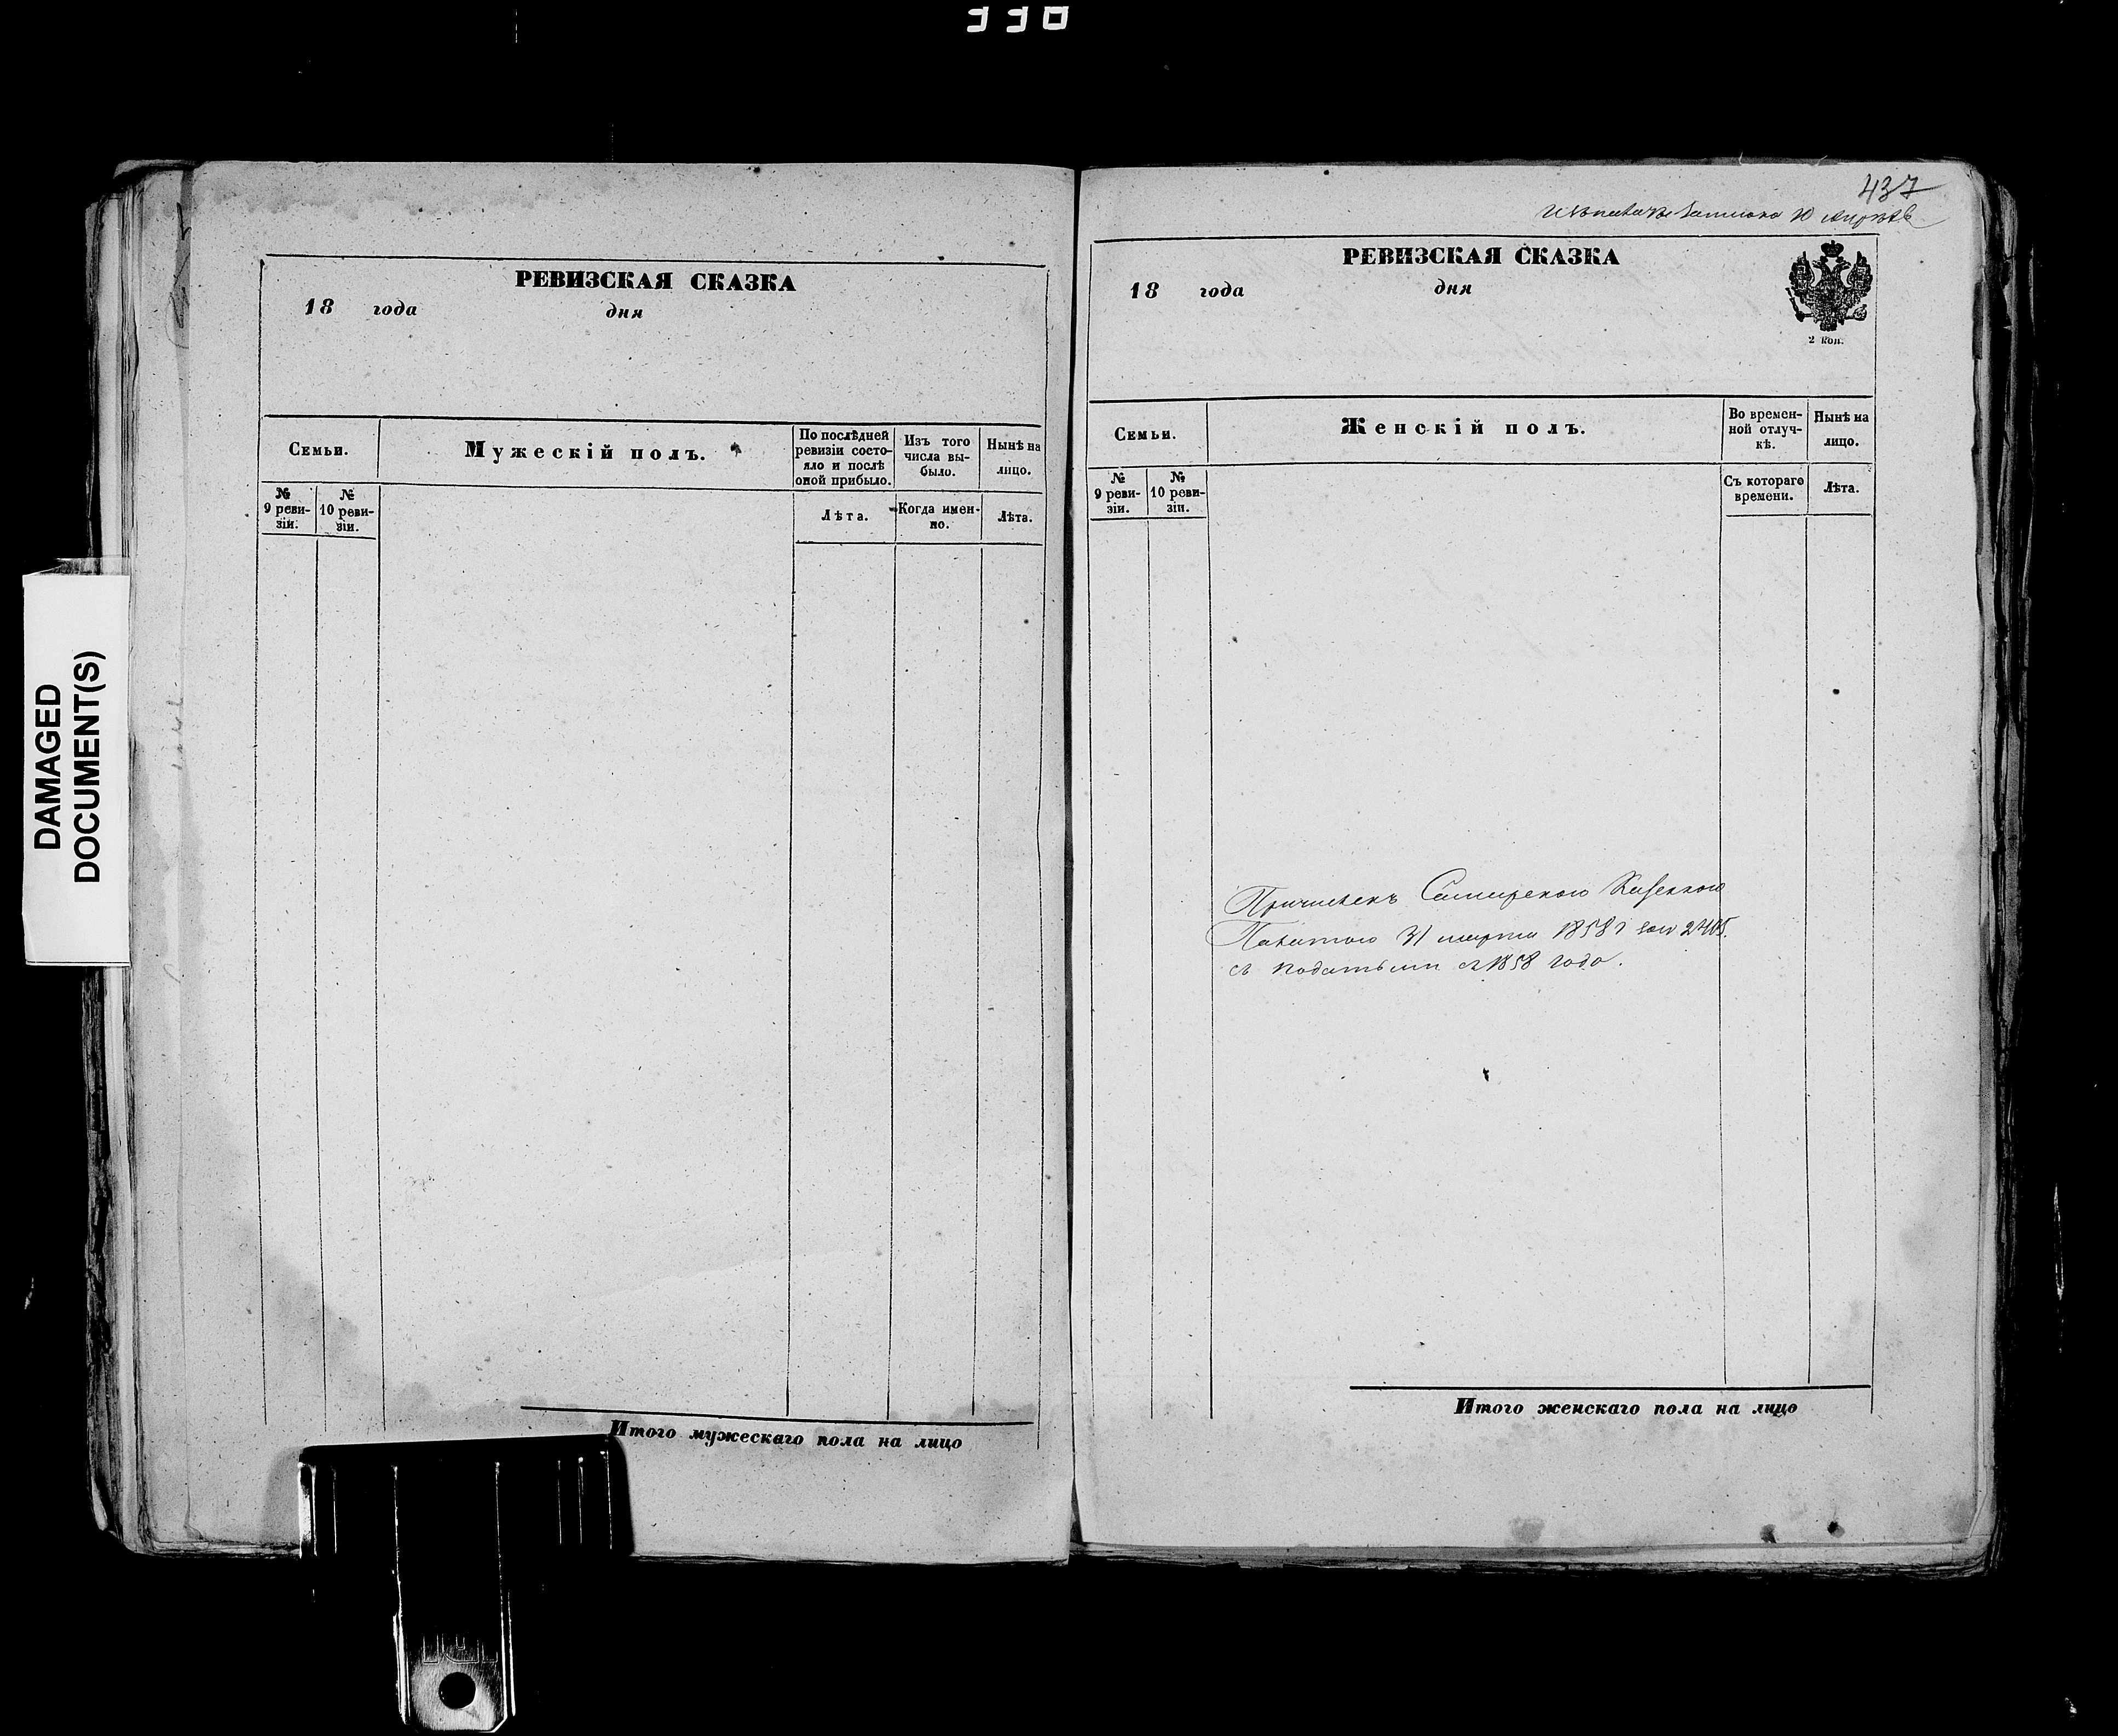 330
DAMAGED
DOCUMENT(S)
РЕВИЗСКАЯ СКАЗКА
18 года дня
Семьи.
Мужескій полъ.
По послѣдней ревизіи состо-
яло и послѣ оной прибыло.
Изъ того числа вы-
было.
Нынѣ на лицо.
№ 9 реви-
зіи.
№ 10 реви-
зіи.
Лѣта.
Когда имен-
но.
Лѣта.
Итого мужескаго пола на лицо
437
РЕВИЗСКАЯ СКАЗКА
18 года дня
2 коп.
Семьи.
Женскій полъ.
Во времен-
ной отлуч-
кѣ.
Нынѣ на лицо.
№ 9 реви-
зіи.
№ 10 реви-
зіи.
Съ котораго времени.
Лѣта.
Причисленъ Самарскою Казенною
Палатою 31 марта 1858 2405.
съ податьми съ 1858 года.
Итого женскаго пола на лицо